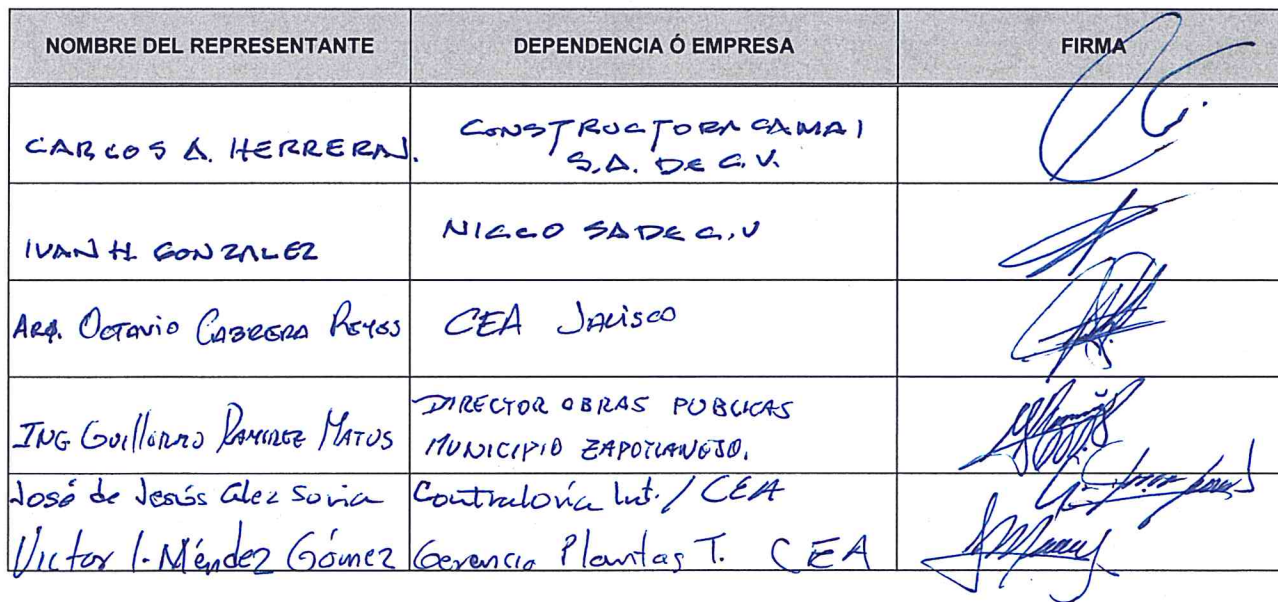 NOMBRE DEL REPRESENTANTE DEPENDENCIA Ó EMPRESA FIRMA
CARLOS A. HERRERA N. CONSTRUCTORA CAMAI
S.A. DE C.V.
IVAN H. GONZALEZ NICCO SA DE C.V
ARQ. OCTAVIO CABRERA REYES CEA JALISCO
ING GUILLERMO RAMIREZ MATUS DIRECTOR OBRAS PUBLICAS
MUNICIPIO ZAPOTLANEJO.
José de Jesús Glez Soria Contraloría Int. / CEA
Victor I. Méndez Gómez Gerencia Plantas T. CEA